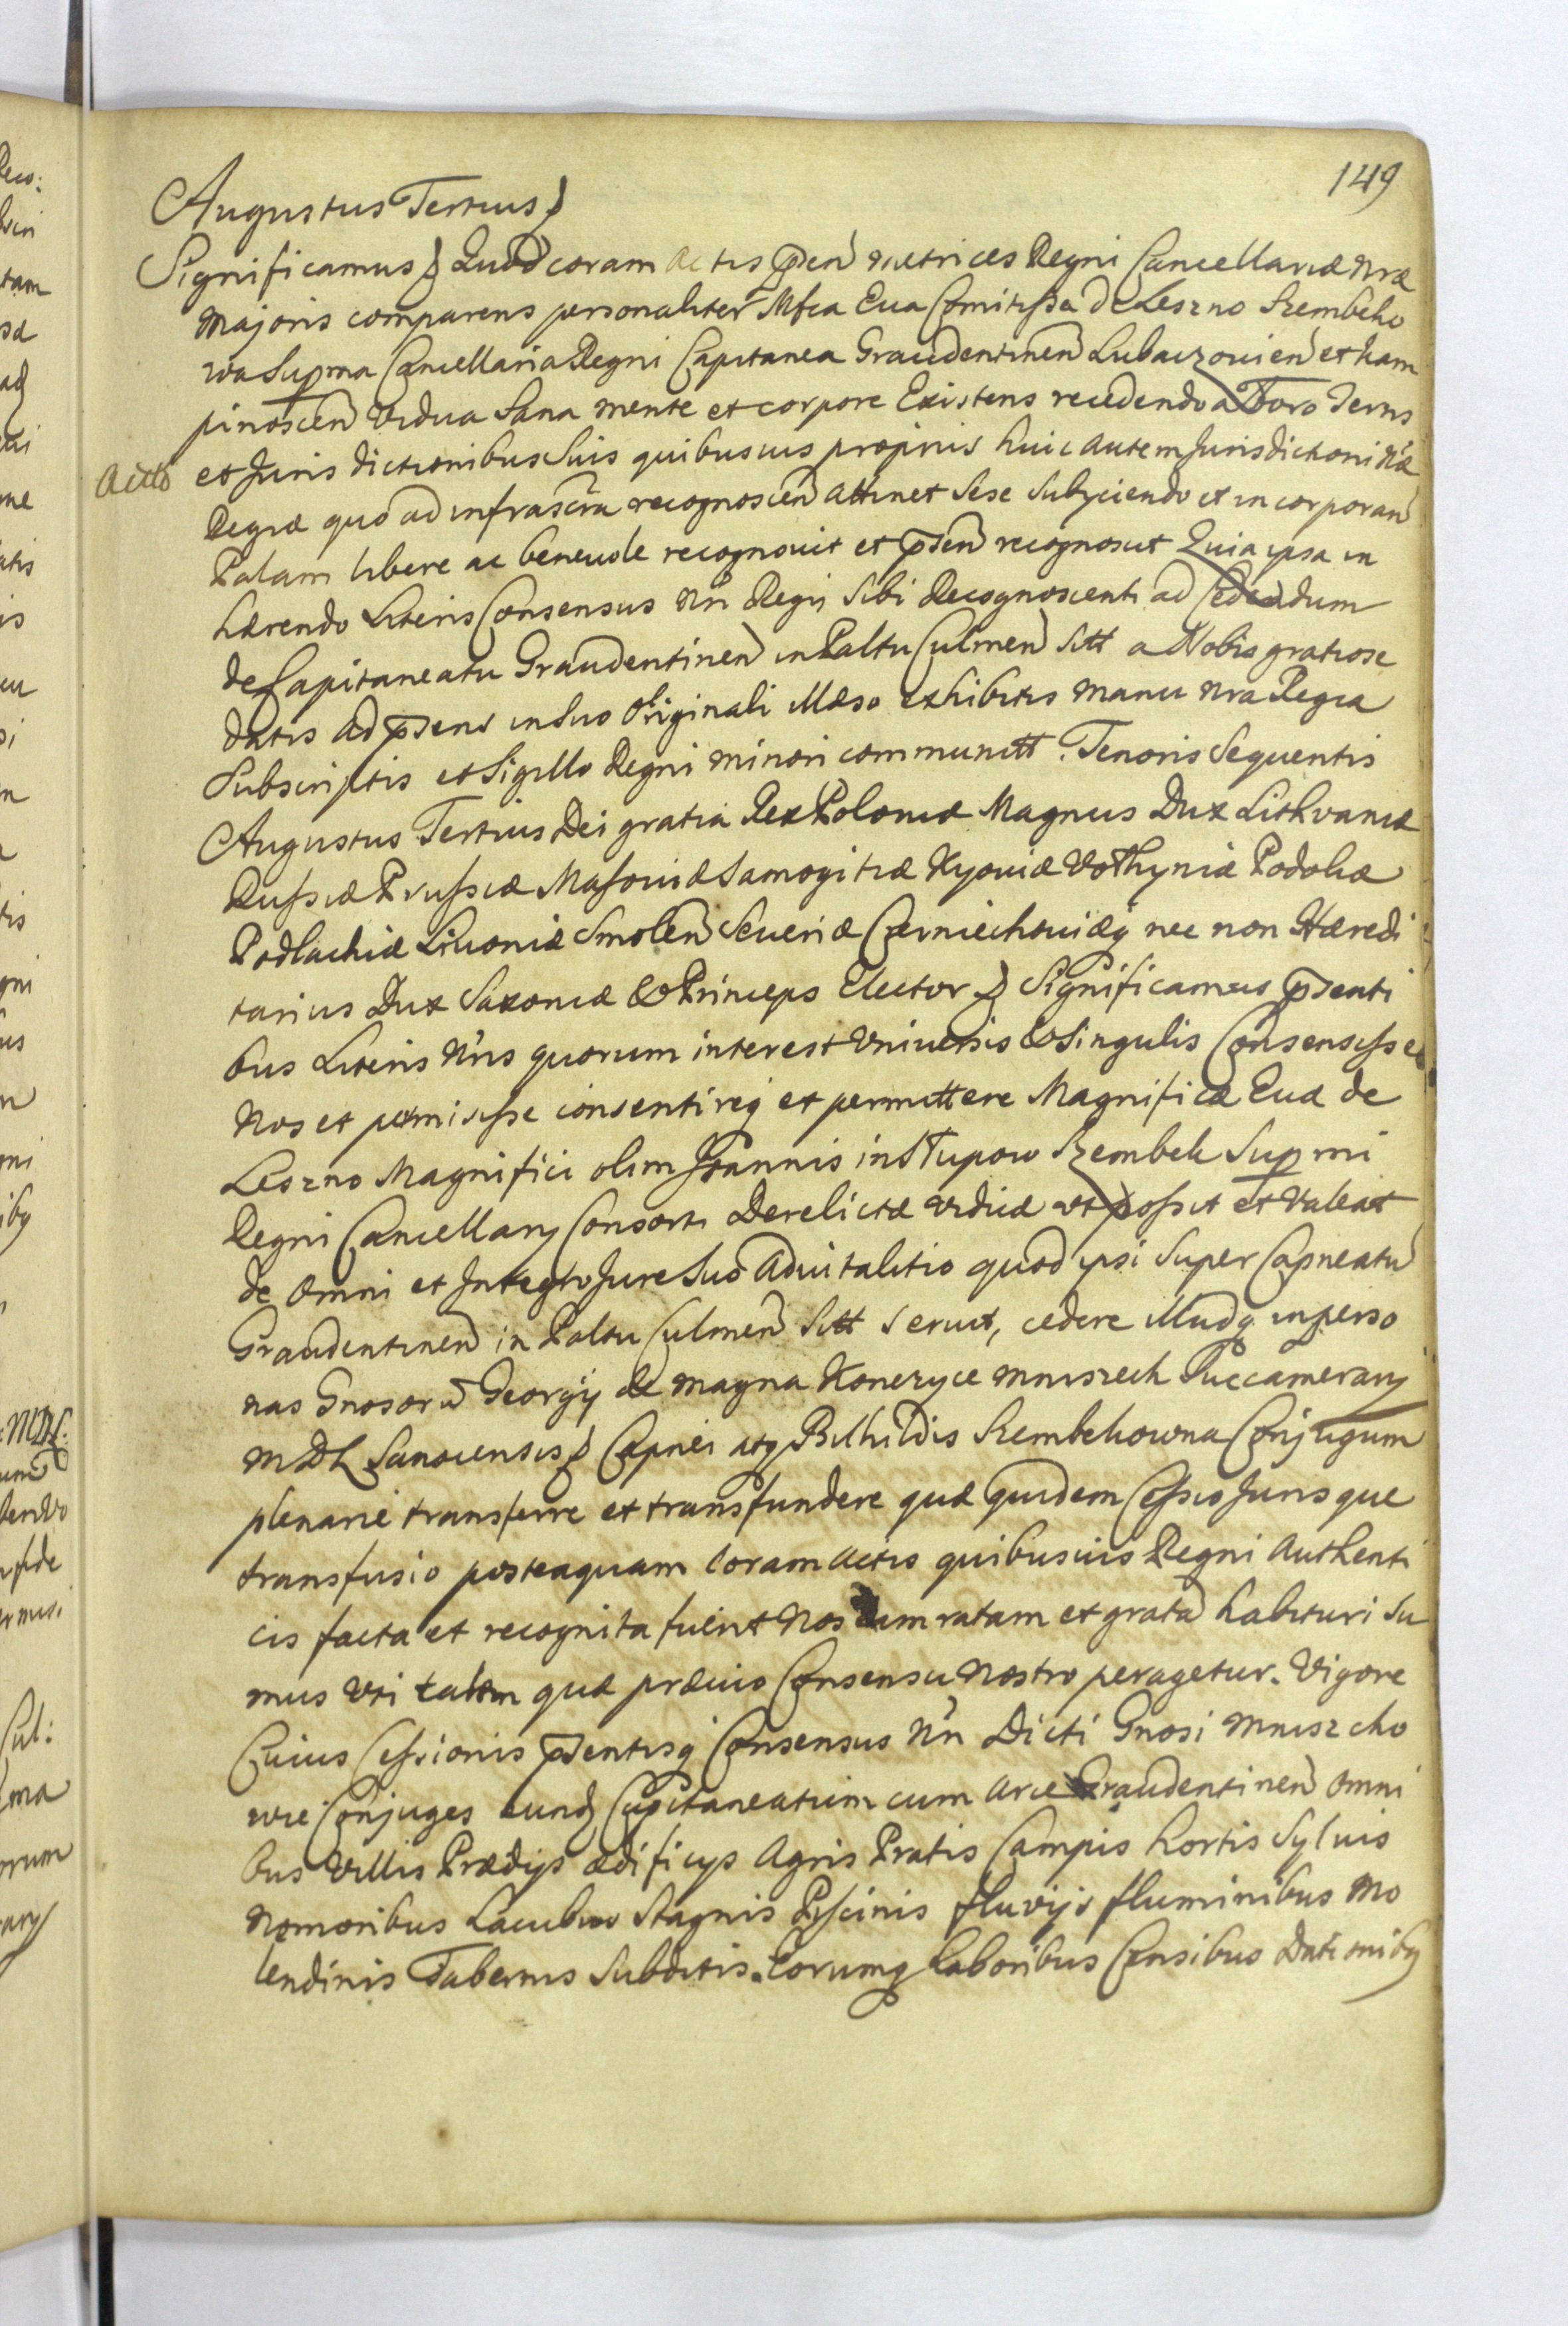 149
Augustus Tertius
Significamus Quod coram Actis pnsen metrices Regni Cancellariæ nræ
Majoris comparens personaliter Mfca Eua Comitissa de Leszno Szembeko
wa Supma Cancellaria Regni Capitanea Graudentinen Lubaczouien et ham
pinoscen vidua Sana mente et corpore Existens recedendo a Foro Terris
et Juris dictionibus Suis quibusuis proprijs huic autem Jurisdictioni næ
Actto
Regiæ quo ad infrascra recognoscen attinet Sese Subijciendo et incorporan
Palam libere ac beneuole recognouit et psen recognoscit Quia ipsa in
hærendo Literis Consensus nri Regij Sibi Recognoscenti ad Cedendum
de Capitaneatu Graudentinen in Paltu Culmen Sitt a Nobis gratiose
datis ad psens in Suo Originali illæso exhibitis manu nra Regia
Subscriptis et Sigillo Regni minori communitt. Tenoris Sequentis
Augustus Tertius Dei gratia Rex Poloniæ Magnus Dux Lithvaniæ
Russiæ Prussiæ Masouiæ Samogitiæ Kyouiæ Volhyniæ Podoliæ
Podlachiæ Liuoniæ Smolen Seueriæ Czerniechouiæq nec non Hæredi
tarius Dux Saxoniæ & Princeps Elector Significamus psenti
bus Literis nris quorum interest Vniuersis & Singulis Consensisse
Nos et permisisse consentireq et permittere Magnificæ Euæ de
Leszno Magnifici olim Joannis in Slupow Szembek Supmi
Regni Cancellarij Consorti Derelictæ viduæ vt possit et Valeat
de omni et Integro Jure Suo aduitalitio quod ipsi Super Capneatu
Graudentinen in Paltu Culmen Sitt Seruit, cedere illudq in perso
nas Gnosoru Georgij de magna Konczyce Mniszech Succamerarij
MDL Sanocensis Capnei atq Bihildis Szembekowna Conjugum
plenarie transferre et transfundere quæ quidem Cessio Jurisque
transfusio posteaquam Coram Actis quibusuis Regni authenti
cis facta et recognita fuerit Nos eam ratam et grata habituri Su
mus vti talem quæ præuio Consensu Nostro peragetur. Vigore
Cuius Cessionis psentisq Consensus nri Dicti Gnosi Mniszcho
wie Conjuges eund Capitaneatum cum arce Graudentinen omni
bus Villis Prædijs ædificijs Agris Pratis Campis hortis Syluis
Nemoribus Lacubus Stagnis Piscinis fluvijs fluminibus Mo
lendinis Tabernis Subditis Eorumq Laboribus Censibus Dationibq